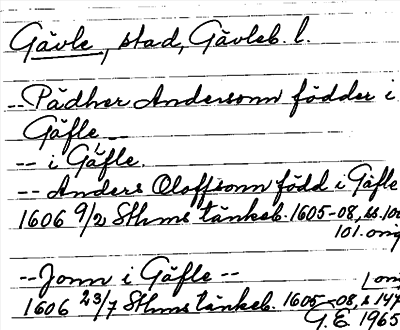 Gävle, stad, Gävleb. l.
-- Pädher Andersonn födder i
Gäfle --
-- i Gäfle.
-- Anders Oloffsonn född i Gäfle
1606 9/2 Sthms tänkeb. 1605-08, ss. 100
101. orig
-- Jonn i Gäfle --
orig
1606 23/7 Sthms tänkeb. 1605-08, s 147
G.E 1965